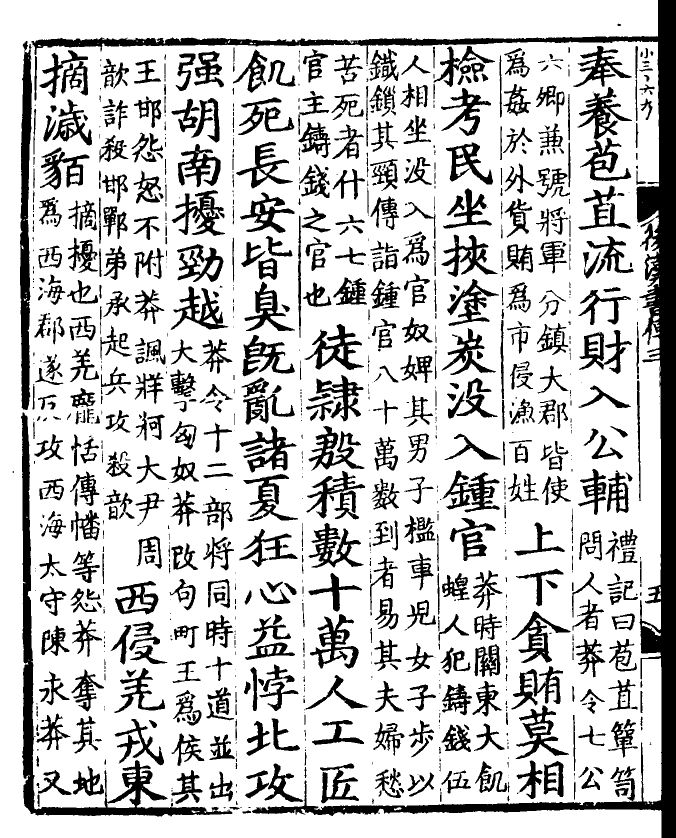 後漢書傳三
五
奉養苞苴流行財入公輔
禮記曰苞苴簞笥
問人者莽令七公
六卿兼號將軍分鎮大郡皆使
爲姦於外貨賄爲市侵漁百姓
上下貪賄莫相
檢考民坐挾塗炭没入鍾官
莽時關東大飢
蝗人犯鑄錢伍
人相坐没入爲官奴婢其男子檻車兒女子步以
鐵鎖其頸傳詣鍾官八十萬數到者易其夫婦愁
苦死者什六七鍾
官主鑄錢之官也
徒隷殷積數十萬人工匠
飢死長安皆臭旣亂諸夏狂心益悖北攻
强胡南擾勁越
莽令十二部將同時十道並出
大擊匈奴莽改句町王爲侯其
王邯怨怒不附莽諷牂牁大尹周
歆詐殺邯鄲弟承起兵攻殺歆
西侵羌戎東
摘濊貊
摘擾也西羌龐恬傳幡等怨莽奪其地
爲西海郡遂反攻西海太守陳永莽又